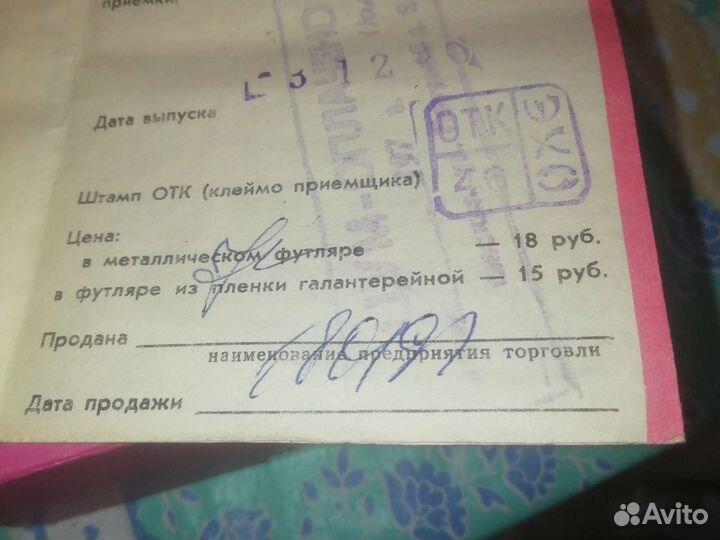 приемки.
Дата выпуска
ОТК
Штамп ОТК (клеймо приемщика)
Цена:
в металлическом футляре — 18 руб.
в футляре из пленки галантерейной — 15 руб.
Продана
наименование предприятия торговли
Дата продажи
Avito